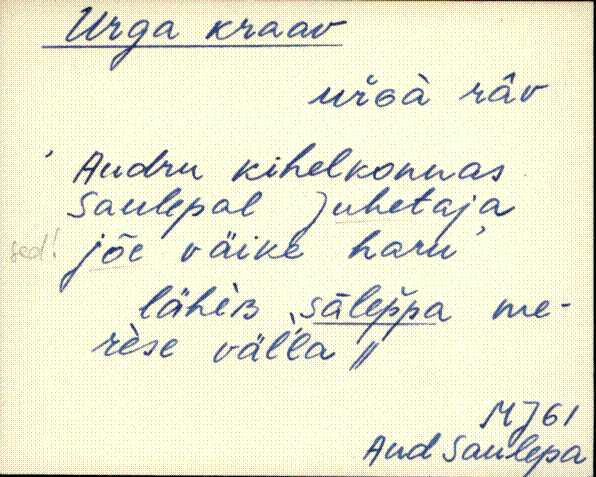 Urga kraav
urGà râv
' Audru kihelkonnas
Saulepal Juhetaja
sed! jõe väike haru'
lähèB sāleppa me-
rèse väl'l'a ||
MJ61
Aud Saulepa